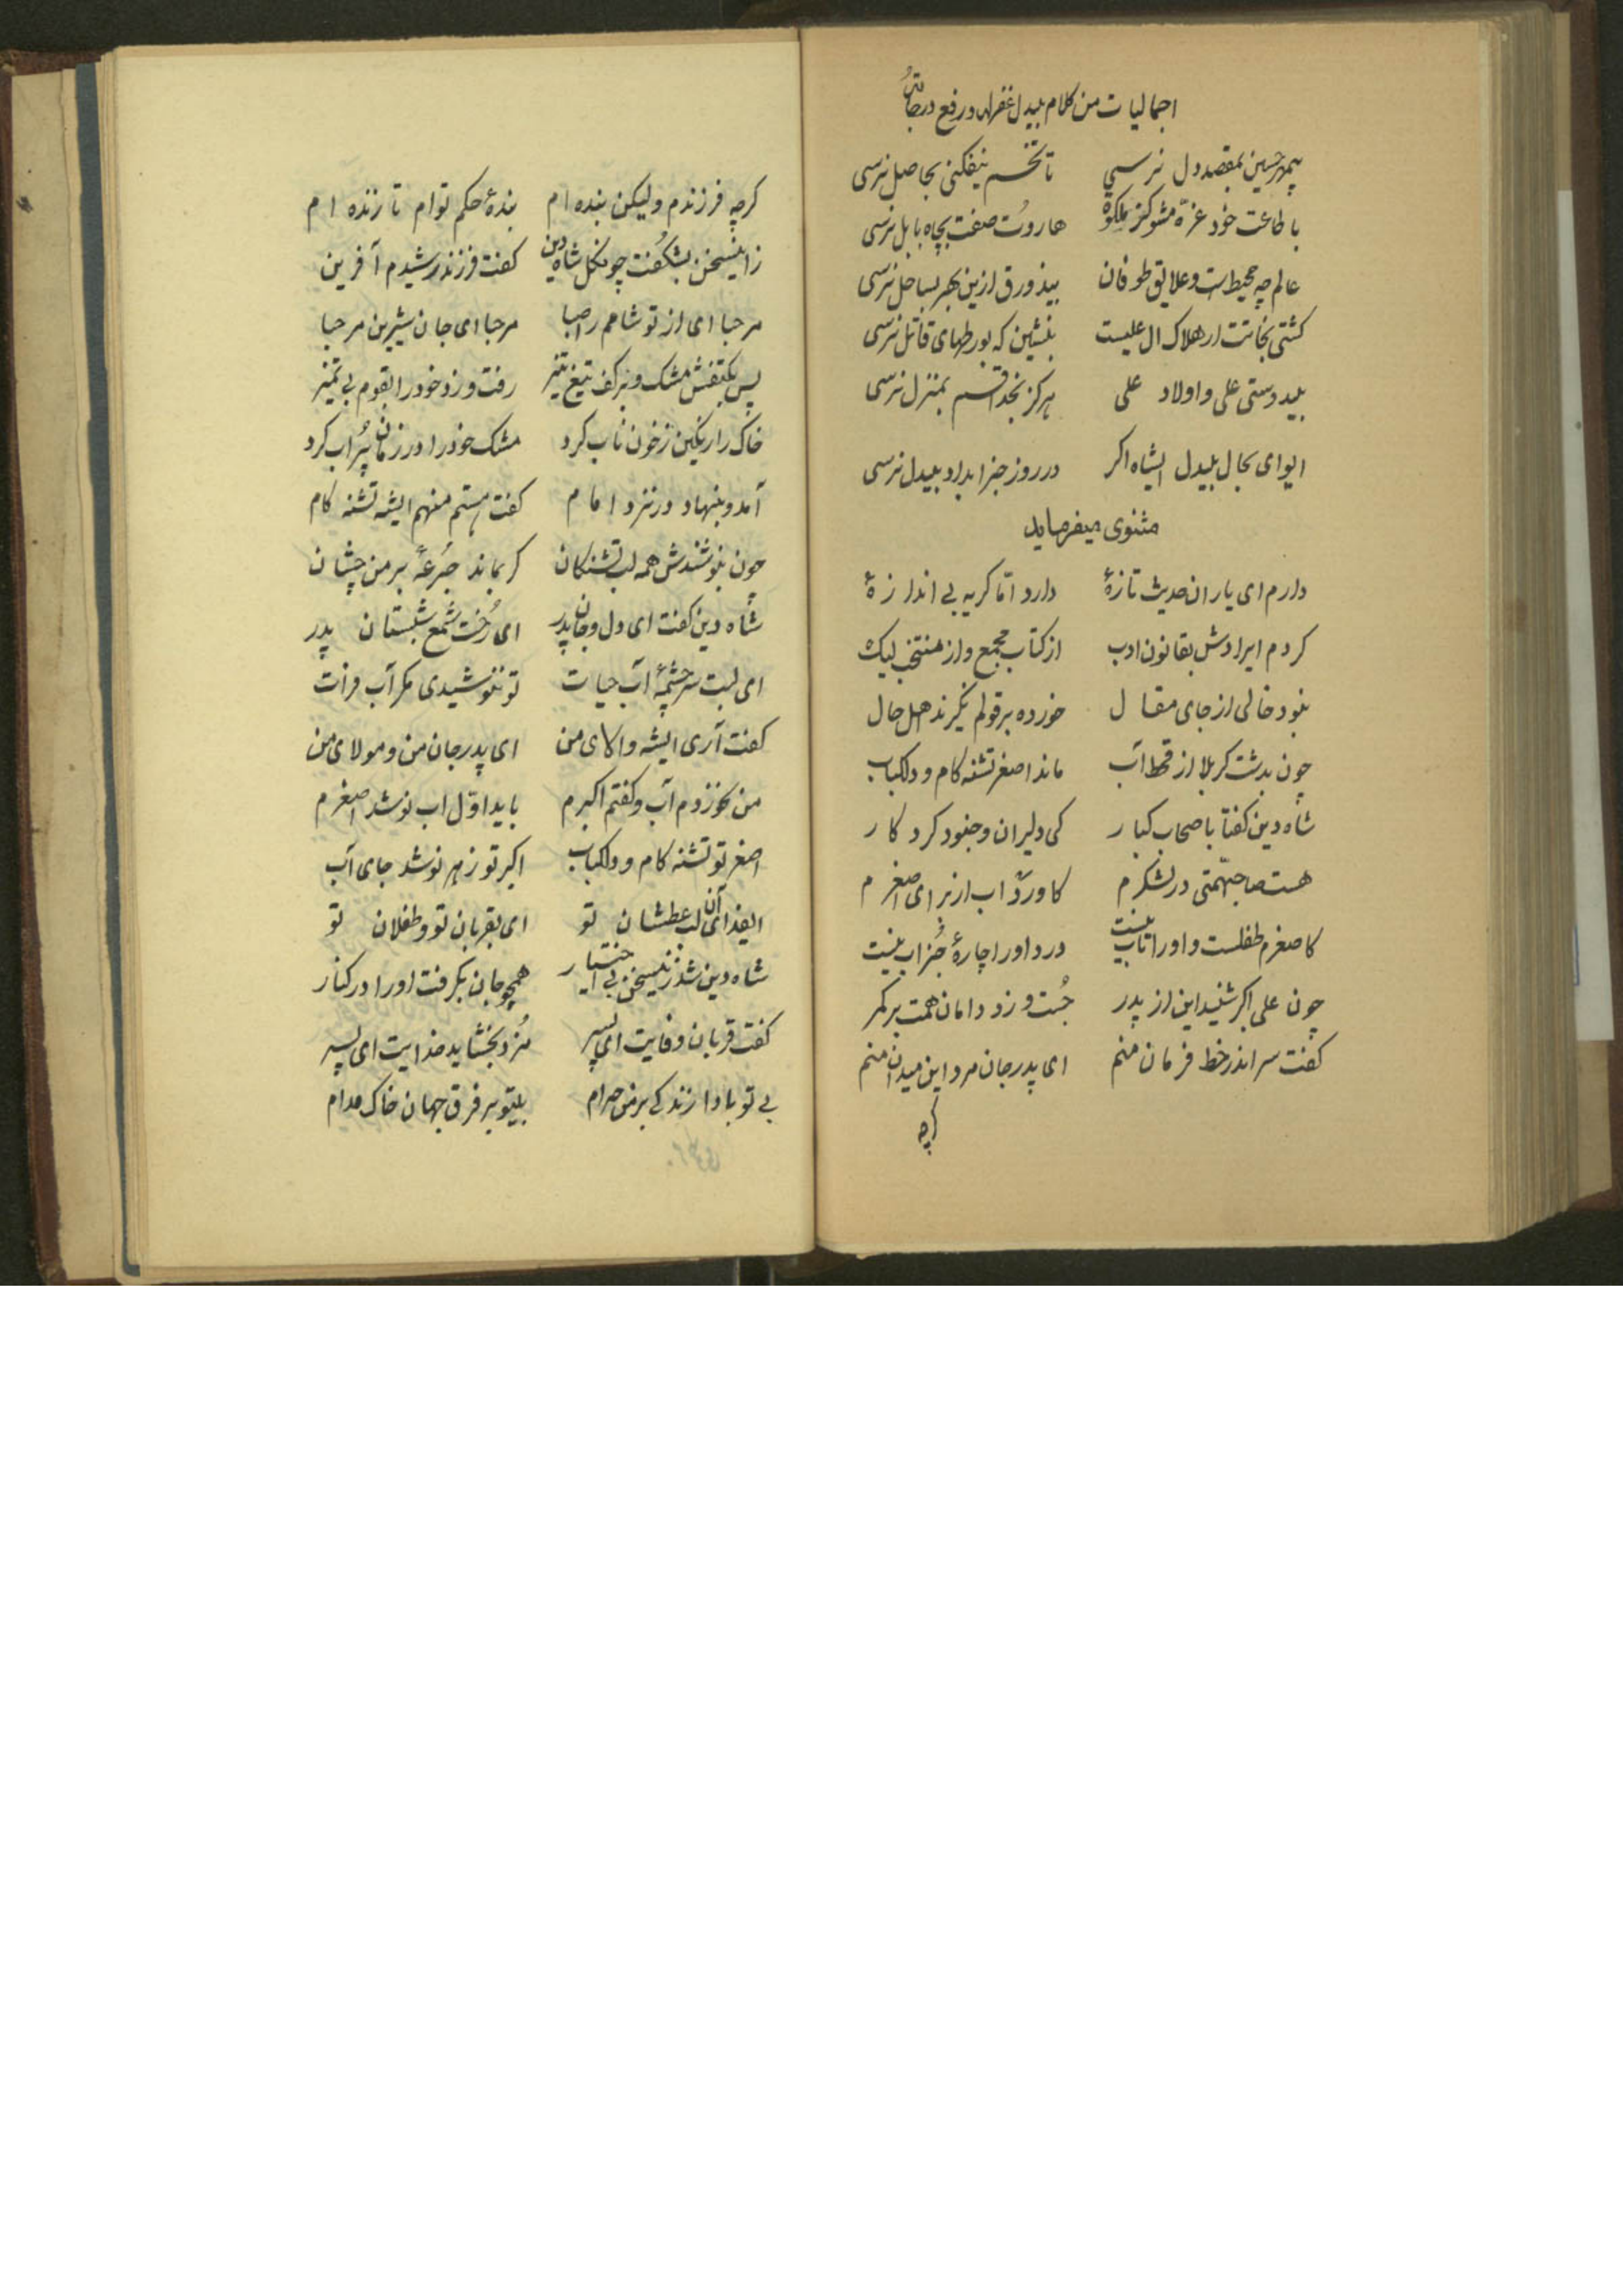 اجمالیات من کلام بیدل غفرله و رفع درجاته
بیمهر حسین بمقصد دل نرسی تا تخم نیفکنی بحاصل نرسی
با طاعت خود غرّه مشو کز ملکوة هاروت صفت بچاه بابل نرسی
عالم چه محیط است و علایق طوفان بیذورق ازین بحر بساحل نرسی
کشتی نجاتت ار هلاک ال علیست بنشین که بورطهای قاتل نرسی
بیدوستی علی و اولاد علی هرکز بخدا قسم بمنزل نرسی
ایوای بحال بیدل ایشاه اکر در روز جزا بداد بیدل نرسی
مثنوی میفرماید
دارم ای یاران حدیث تازهٔ دارد امّا کریه بی اندازهٔ
کردم ایرادش بقانون ادب از کتاب مجمع و از منتخب لیک
نبود خالی از جای مقال خورده بر قولم نکیرند اهل حال
چون بدشت کربلا از قحط آب ماند اصغر تشنه کام و دلکباب
شاه دین کفتا باصحاب کبار کی دلیران وجنود کردکار
هست صاحبهمّتی در لشکرم کاورد آب از برای اصغرم
کاصغرم طفلست و اورا تاب نیست درد اورا چارهٔ جُز اب نیست
چون علی اکبر شنید این از پدر جُست و زد دامان همت بر کمر
کفت سر اندر خط فرمان منم ای پدرجان مرد این میدان منم
کرچه
کرچه فرزندم ولیکن بنده ام بندهٔ حکم توام تا زنده ام
زاینسخن بشکُفت چونکل شاه دین کفت فرزند رشیدم آفرین
مرحبا ای از تو شامم را صبا مرحبا ای جان شیرین مرحبا
پس بکتفش مشک و بر کف تیغ تیز رفت و زد خودرا بقوم بی تمیز
خاک را رنکین ز خون ناب کرد مشک خودرا در زمان پُر اب کرد
آمد و بنهاد در نزد امام کفت هستم منهم ایشه تشنه کام
چون بنوشندش همه لب تشنکان کر بماند جُرعهٔ بر من چشان
شاه دین کفت ای دل و جان پدر ای رُخت شمع شبستان پدر
ای لبت سرچشمهٔ آب حیات تو ننوشیدی مکر آب فرات
کفت آری ایشه والای من ای پدرجان من و مولای من
من نخوردم آب و کفتم اکبرم باید اوّل اب نوشد اصغرم
اصغر تو تشنه کام و دلکباب اکبر تو زهر نوشد جای آب
ایفدای آن لب عطشان تو ای بقربان تو و طفلان تو
شاه دین شد زینسخن بی اختیار همچو جان بکرفت اورا در کنار
کفت قربان وفایت ای پسر مُزد بخشاید خدایت ای پسر
بی تو بادا زندکی بر من حرام بیتو بر فرق جهان خاک مدام